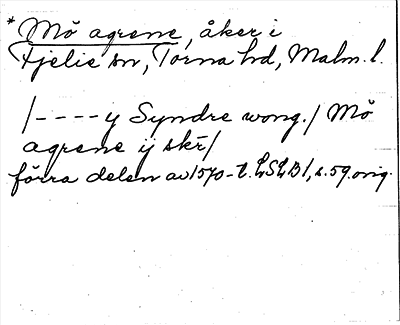 * Mö agrene, åker i
Fjelie sn, Torna hd, Malm. l.
/---- y Syndre wong./ Mö
agrene ij skr̄/
förra delen av 1570-t. LSLB1, s. 59. orig.